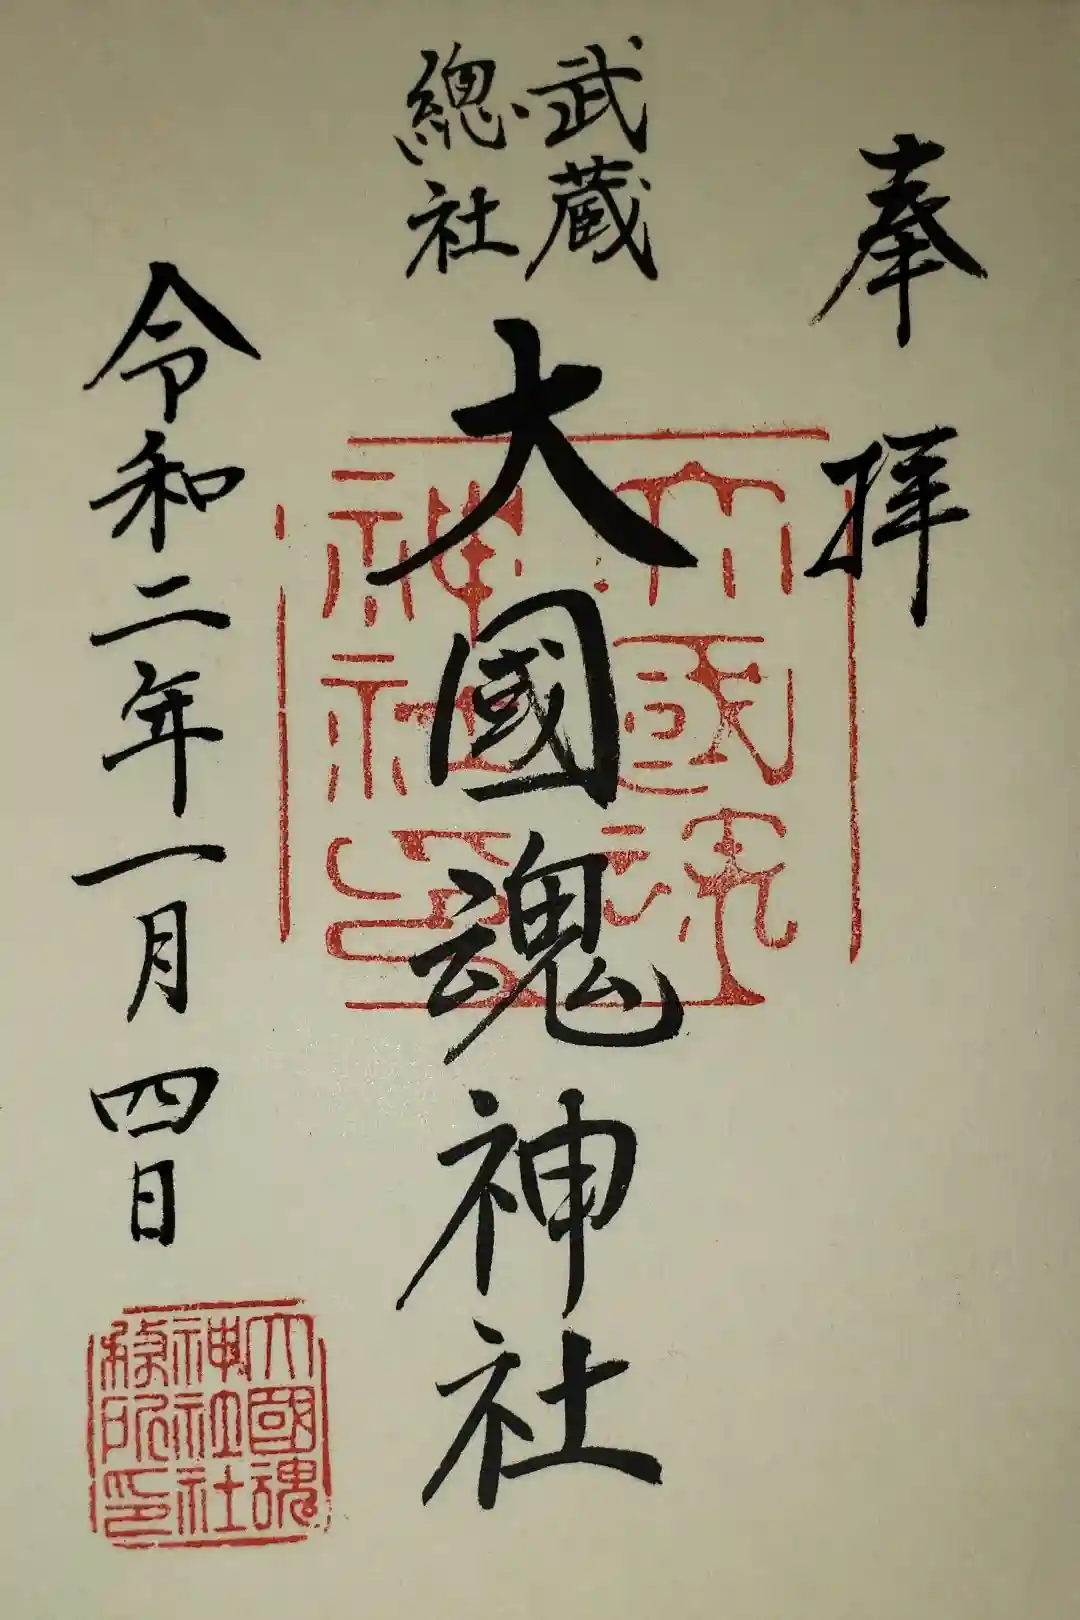 奉拝
武蔵
總社
大國魂神社
令和二年一月四日
大國魂
神社
印
大國魂
神社社
務所印